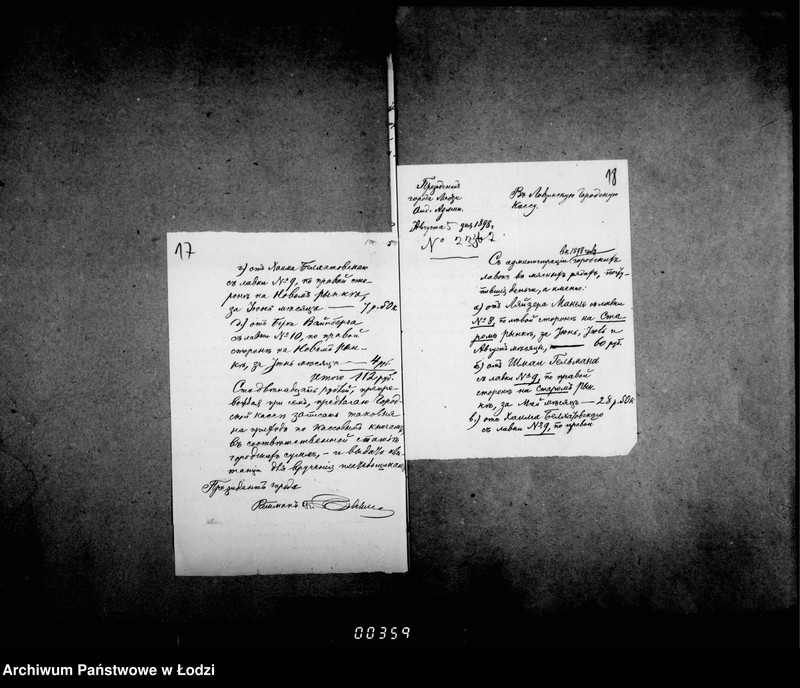 17
г) отъ Хаима Белхатовскаго
съ лавки № 9, по правой сто-
ронѣ на Новомъ рынкѣ,
за Іюнь мѣсяцъ 7 р. 50 к
д) отъ Вайнберга
съ лавки № 10, по правой
сторонѣ на Новомъ рын-
кѣ, за Іюнь мѣсяцъ — 4 руб.
Итого 112 руб.
Сто двѣнадцать рублей, препро-
вождая при семъ, предлагаю Город-
ской Кассѣ записать таковыя
на приходъ по кассовымъ книгамъ
въ соотвѣтственной статьѣ
городскихъ суммъ, — и выдать кви-
танціи для врученія плательщикамъ
Президентъ города
18
Президентъ
города Лодзи
Августа 5 дня 1898 г.
№
Въ Лодзинскую Городскую
Кассу.
въ 1898 году
Съ администраціи городскихъ
лавокъ въ мясныхъ рядахъ, посту-
пившія деньги, а именно:
а) отъ съ лавки
№ 8, по лѣвой сторонѣ на Ста-
ромъ рынкѣ, за Іюнь, Іюль и
Августъ мѣсяцы, — 60 руб.
б) отъ Гельмана
съ лавки № 9, по правой
сторонѣ на Старомъ рын-
кѣ, за Май мѣсяцъ — р. 50 к
в) отъ Хаима Белхатовскаго
съ лавки № 9, по правой
00359
Archiwum Państwowe w Łodzi